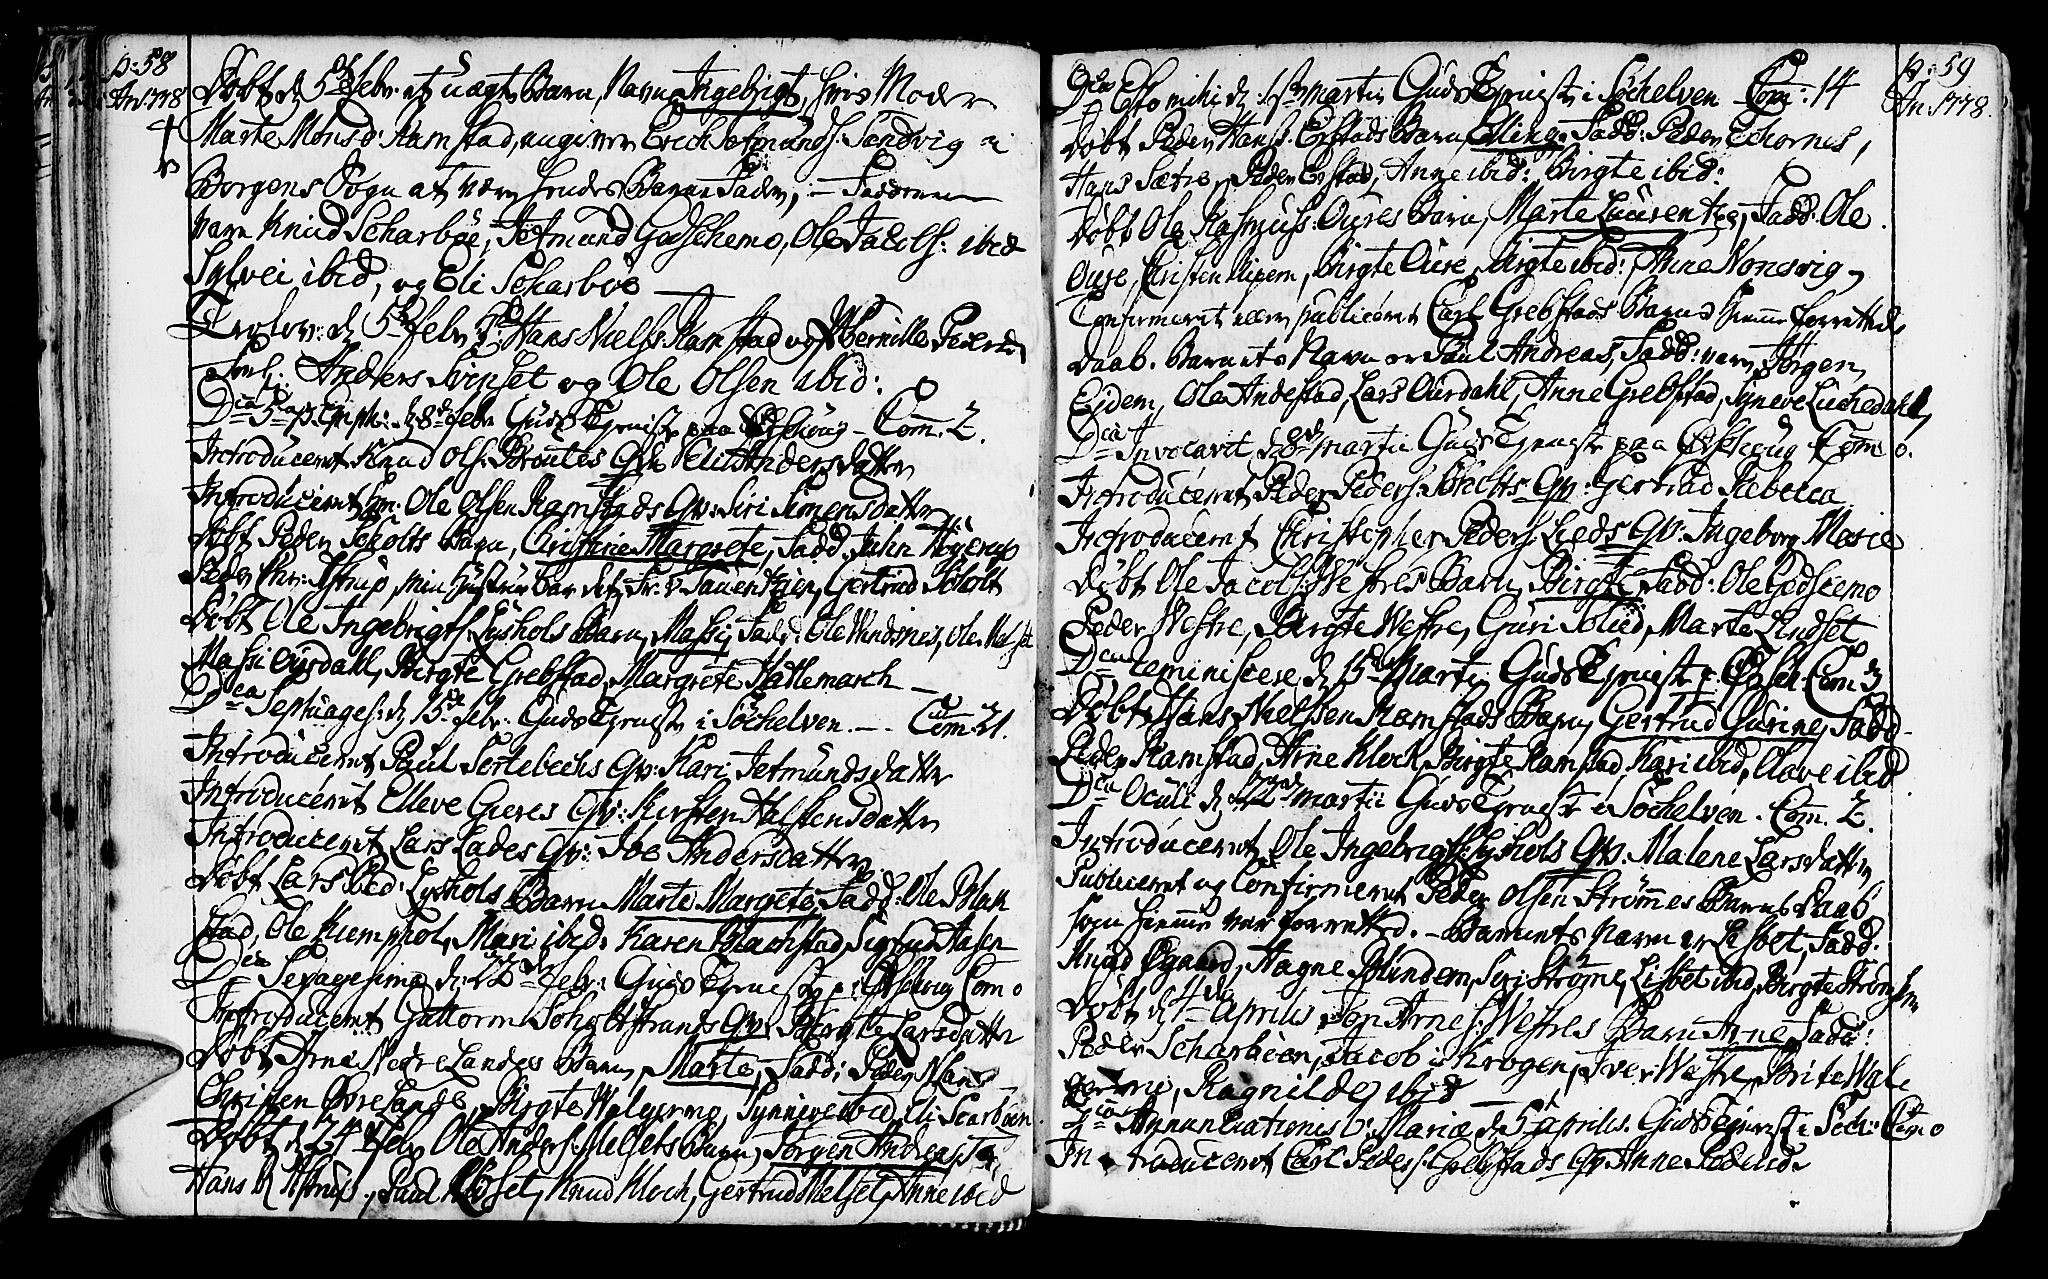 p: 58
An. 1778
Døbt d. 5te Febr. et uægte Barn, Navn Ingebrigt, hvis Moder
Marte Monsd: Ramstad, angiver Erich Jetmunds: Sandvig i
Borgens Sogn at være hendes Barne Fader, – Fadderne
vare Knud Scharbøe, Jetmund Godschemo, Ole Jacobs: ibid
Sylvei ibid, og Eli Scharbøe
Trolov: d. 5te Febr. Hans Niels: Ramstad og Pernille Peders
Forl: Anders Svinset og Ole Olsen ibid:
Dca 5ta p. Epiph: d. 8de Febr Guds Tieneste paa Ørschoug – Com. 2.
Introduceret Knud Ols: Brautes Qv. Andersdatter
Introduceret Ole Olsen Ramstads Qv: Siri Simensdatter
Døbt Peder Scholts Barn, Christine Margrete, Fadd. John Høyerup
Peder Chr: Astrup, min Hustrue bar det, Fr: v Tauentzien, Gertrud Scholt
Døbt Ole Ingebrigts Lyshols Barn, Massi, Fadd: Ole Melset
Massi Ousdahl, Birgte Grebstad, Margrete Hatlemarch
Dca Septuages: d. 15de Febr: Guds Tieneste i Søchelven. – Com. 21.
Introduceret Paul Sortebechs Qv: Kari Jetmundsdatter
Introduceret Elleve Gieres Qv: Kirsten Halstensdatter
Introduceret Lars Lades Qv: Andersdatter
Døbt Lars Ped: Lyshols Barn Marte Margrete, Fadd: Ole Blak
stad, Ole Kiemphol, Mari ibid: Karen Blachstad, Sigrud Aasen
Dca Sexagesima d. 22de Febr: Guds Tieneste p: Ørschoug Com 0
Introduceret Guttorm Scholtstrants Qv. Birgte Larsdatter
Døbt Arne Nedre Landes Barn, Marte, Fadd: Peder
Christen Øvre Lande, Birgte Walgermo, Synneve ibid, Eli Scarbøen
Døbt d. 24de Febr Ole Anders: Melsets Barn, Jørgen Andreas Fa:
Hans Astrup, Paul Melset, Knud Kloch, Gertrud Melset, Anne ibid
p. 59
An. 1778.
Dca Esto mihi d. 1ste Martii Guds Tieneste i Søchelven Com: 14
Døbt Peder Hans: Erstads Barn, Fadd: Peder Echornes,
Hans Sætre, Peder Erstad, Anne ibid: Birgte ibid:
Døbt Ole Rasmus: Oures Barn, Marte Laurentze, Fadd: Ole
Oure, Christen Ripern, Birgte Oure, Birgte ibid: Anne Nonsvig
Confirmeret eller publiceret Carl Grebstads Barns hiemme forrettede
Daab. Barnets Navn er Paul Andreas, Fadd: vare Jørgen
Eidem, Ole Andestad, Lars Ousdahl, Anne Grebstad, Synneve Luchedahl,
Dca Invocavit d. 8de Martii Guds Tieneste paa Ørschoug Com 0.
Introduceret Peder Peders: Scholts Qv: Gertrud Rebecca
Introduceret Christopher Peders: Lieds Qv: Ingeborg Marie
Døbt Ole Jacobs: Westres Barn, Birgte, Fadd: Ole Godscemo
Peder Westre, Birgte Westre, Guri Solied, Marte Lindset
Dca Reminiscere d. 15de Martii Guds Tieneste p: Ørsch: Com
Døbt Hans Nielssen Ramstads Barn, Gertrud Gurine, Fadd
Peder Ramstad, Arne Kloch, Birgte Ramstad, Kari ibid, Olave ibid
Dca Oculi d. 22de Martii Guds Tieneste i Søchelven. Com. 2.
Introduceret Ole Ingebrigts: Lyshols Qv. Malene Larsdatter
Publiceret og Confirmeret Peder Olsen Strømmes Barns Daab
som hiemme var forrettet. – Barnets Navn er Lisbet, Fadd:
Knud Øgaard, Aagne Blindem, Siri Strømme, Lisbet ibid, Birgte Strømhem
Døbt d. 1te Aprilis Iver Arnes: Westres Barn Arne, Fadd:
Peder Scharbøen, Jacob i Krogen, Iver Westre, Brite Wal
germo, Ragnilde ibid
Annunciationis b: Mariæ d. 5te Aprilis. Guds Tieneste i Søch: Com 0
Introduceret Carl Peders: Grebstads Qv Anne Pedersd.